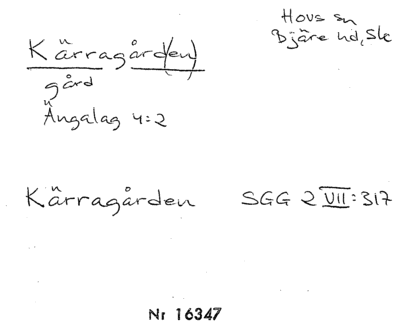 Hovs sn
Bjäre hd, Sk
Kärragård(en)
gård
Ängalag 4:2
Kärragården SGG 2 VII:317
Nr 16347